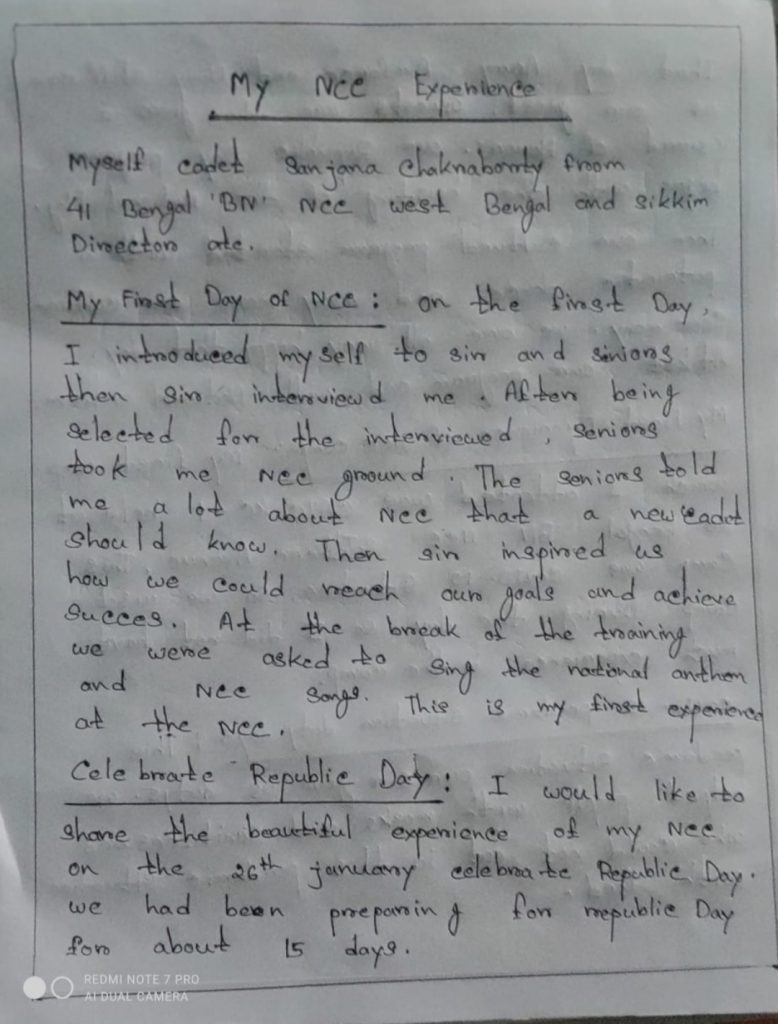 My NCC Experience
Myself cadet Sanjana Chakraborrty from
41 Bengal 'BN' NCC west Bengal and sikkim
Director ate.
My First Day of NCC : on the first Day,
I introduced myself to sir and siniors
then sir interviewd me. After being
selected for the interviewed, seniors
took me NCC ground. The seniors told
me a lot about NCC that a new cadet
should know. Then sir inspired us
how we could reach our goals and achieve
succes. At the break of the training
we were asked to sing the national anthem
and NCC songs. This is my first experience
at the NCC.
Celebrate Republic Day : I would like to
share the beautiful experience of my NCC
on the 26th january celebrate Republic Day.
we had been preparing for republic Day
for about 15 days.
REDMI NOTE 7 PRO
AI DUAL CAMERA